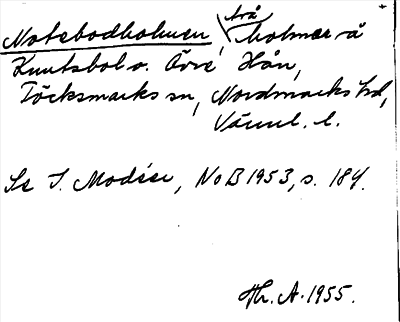 Notsbodholmen, två holmar å
Knutsbol o. Övre Hån,
Töcksmarks sn, Nordmarks hd,
Värml. l.
Se I. Modéer, NoB 1953, s. 184.
Hr. A. 1955.